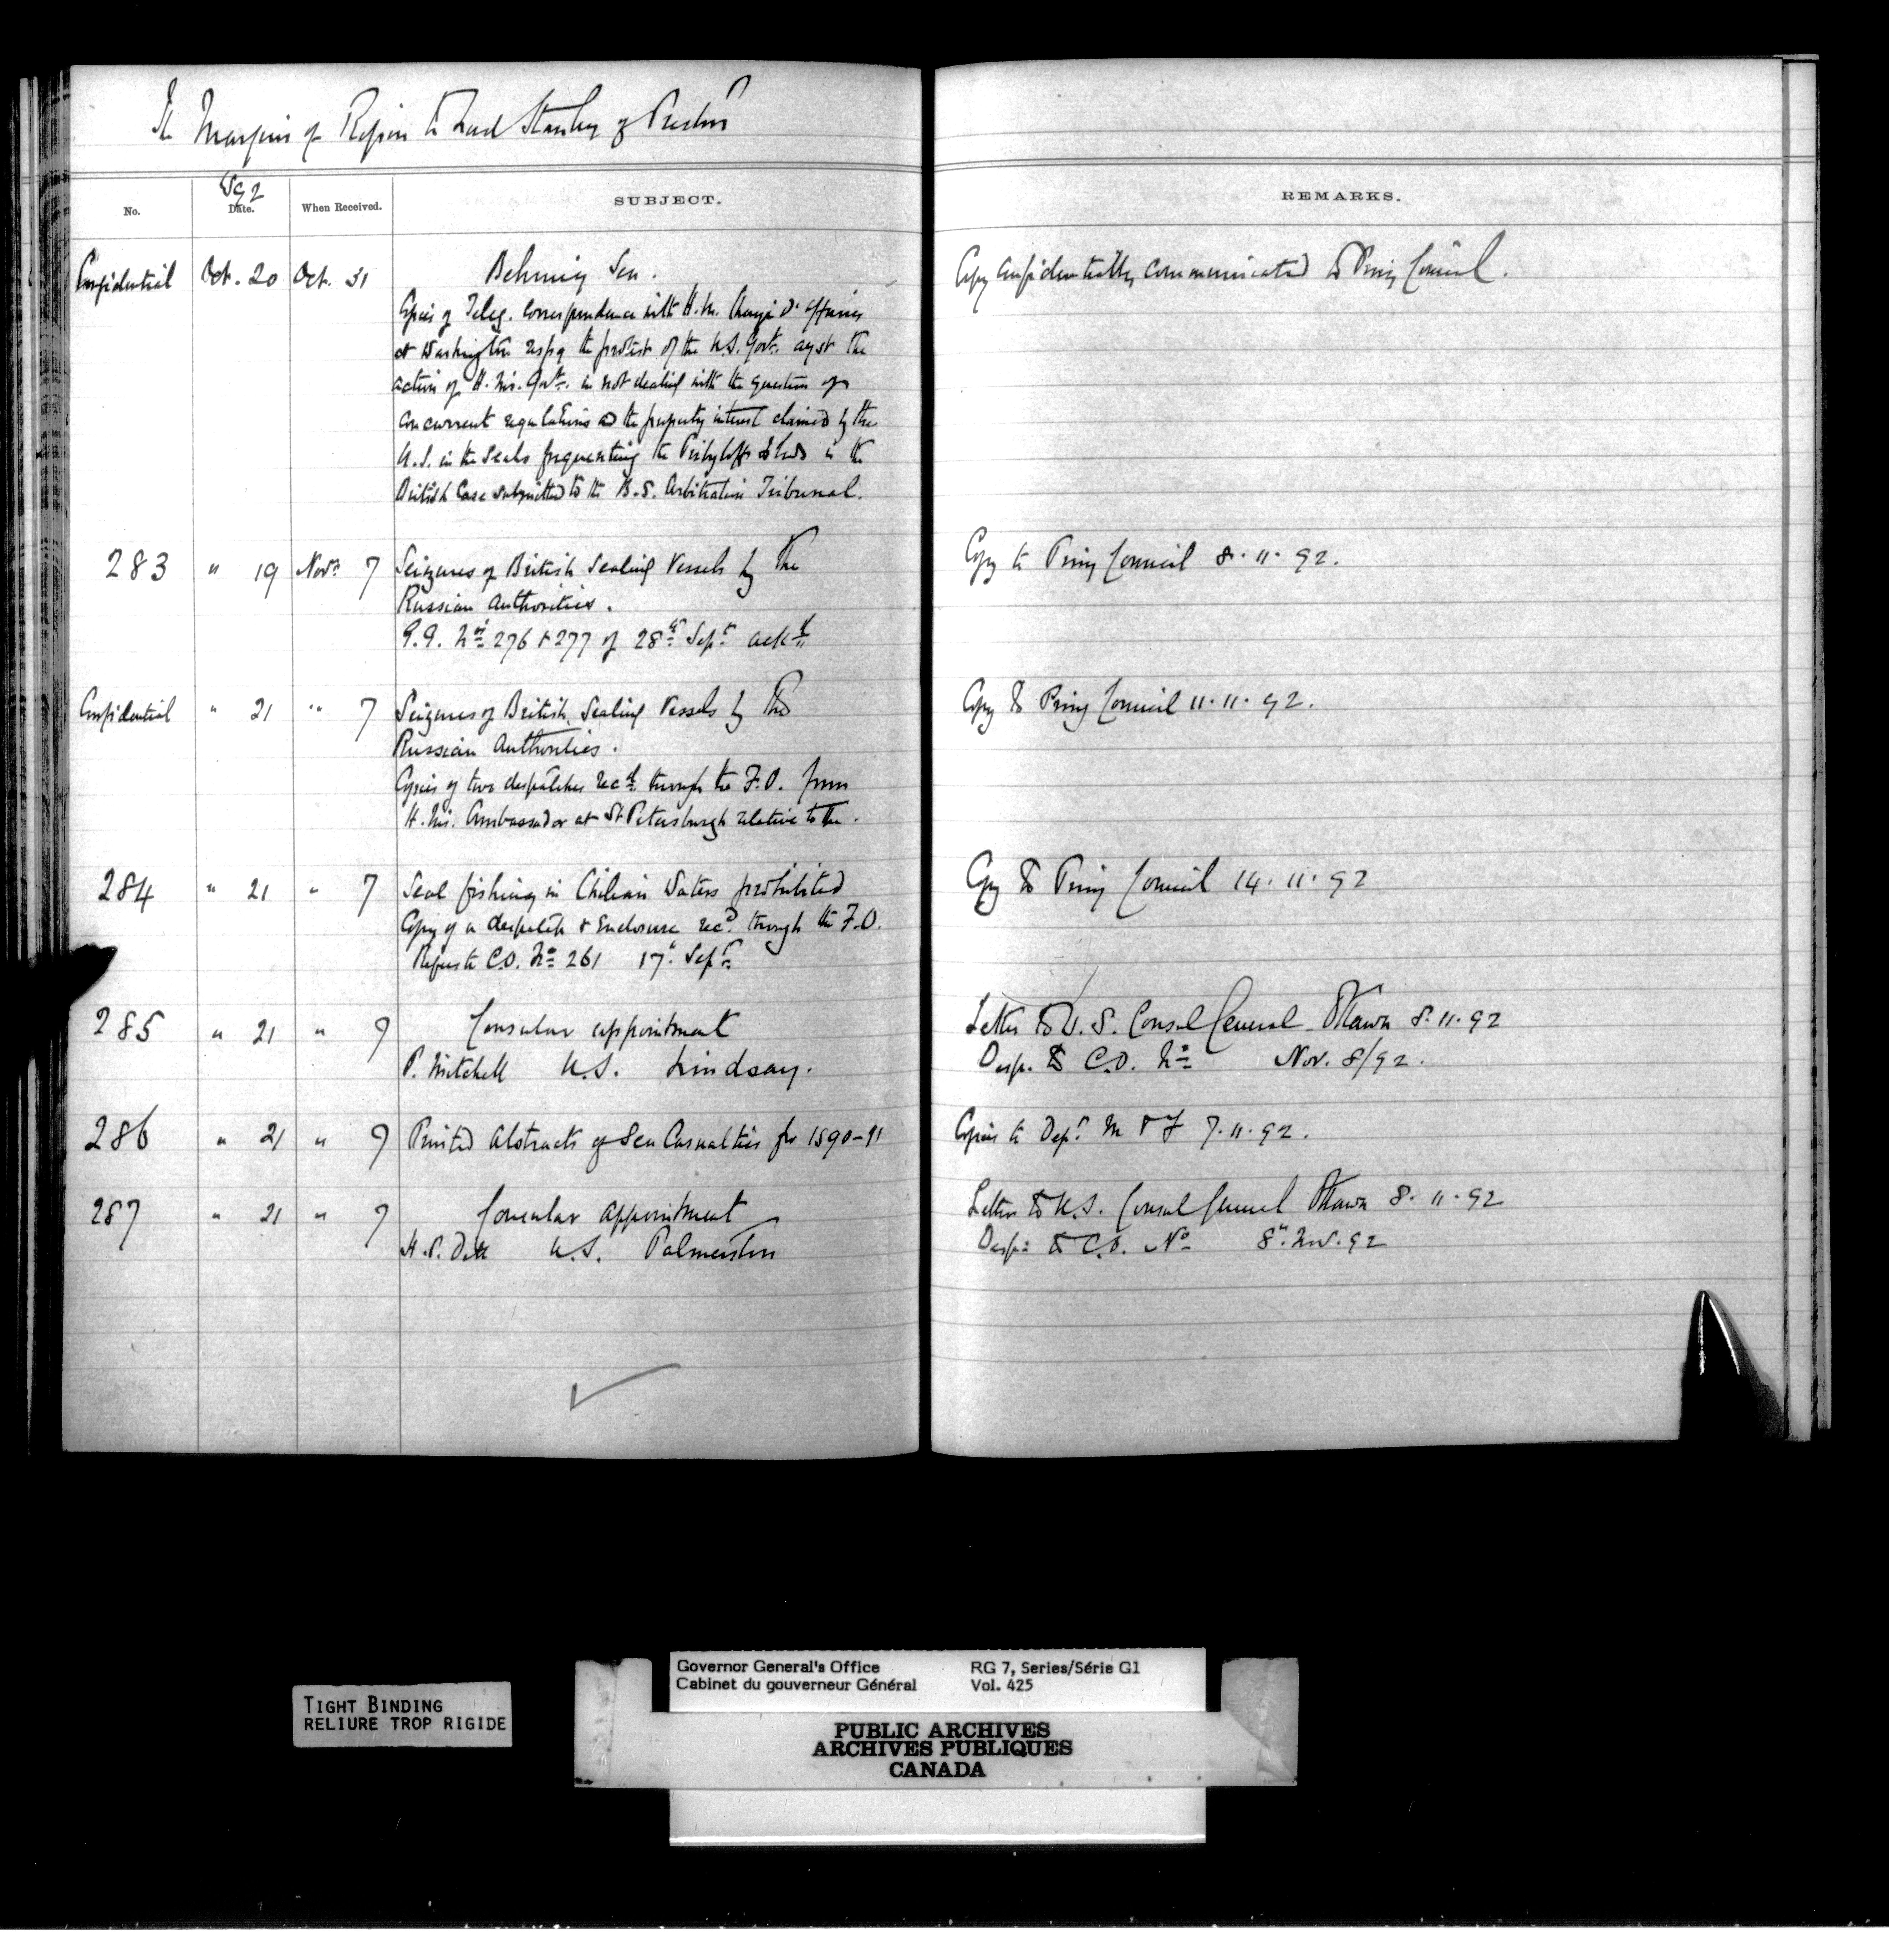 The Marquis of Ripon to Lord Stanley of Preston
1892
No. Date. When Received. SUBJECT. REMARKS.
Confidential Oct. 20 Oct. 31 Behring Sea. Copy confidentially communicated to Privy Council.
Copies of Teleg. correspondence with H.M. Chargé d'Affaires
at Washington respg the protest of the U.S. Govt. agst the
action of H.M. Govt. in not dealing with the question of
concurrent regulations and the property interest claimed by the
U.S. in the Seals frequenting the Pribyloff Islands in the
British Case submitted to the B.S. Arbitration Tribunal.
283 " 19 Novr 7 Seizures of British Sealing Vessels by the Copy to Privy Council 8.11.92.
Russian Authorities.
G.G. Nos 276 & 277 of 28th Sept ackd
Confidential " 21 " 7 Seizures of British Sealing Vessels by the Copy to Privy Council 11.11.92.
Russian Authorities.
Copies of two despatches recd through the F.O. from
H.M. Ambassador at St Petersburgh relative to the.
284 " 21 " 7 Seal fishing in Chilian Waters prohibited Copy to Privy Council 14.11.92
Copy of a despatch & enclosure recd through the F.O.
Refers to C.O. No 261 17th Sept
285 " 21 " 7 Consular appointment Letter to U.S. Consul General Ottawa 8.11.92
P. Mitchell U.S. Lindsay. Desp. to C.O. No Nov. 8/92.
286 " 21 " 7 Printed Abstracts of Sea Casualties for 1890-91 Copies to Dept M & F 7.11.92.
287 " 21 " 7 Consular appointment Letter to U.S. Consul General Ottawa 8.11.92
H.P. Dill U.S. Palmerston Desp. to C.O. No 8th Nov. 92
Governor General's Office RG 7, Series/Série G1
Cabinet du gouverneur Général Vol. 425
TIGHT BINDING
RELIURE TROP RIGIDE
PUBLIC ARCHIVES
ARCHIVES PUBLIQUES
CANADA